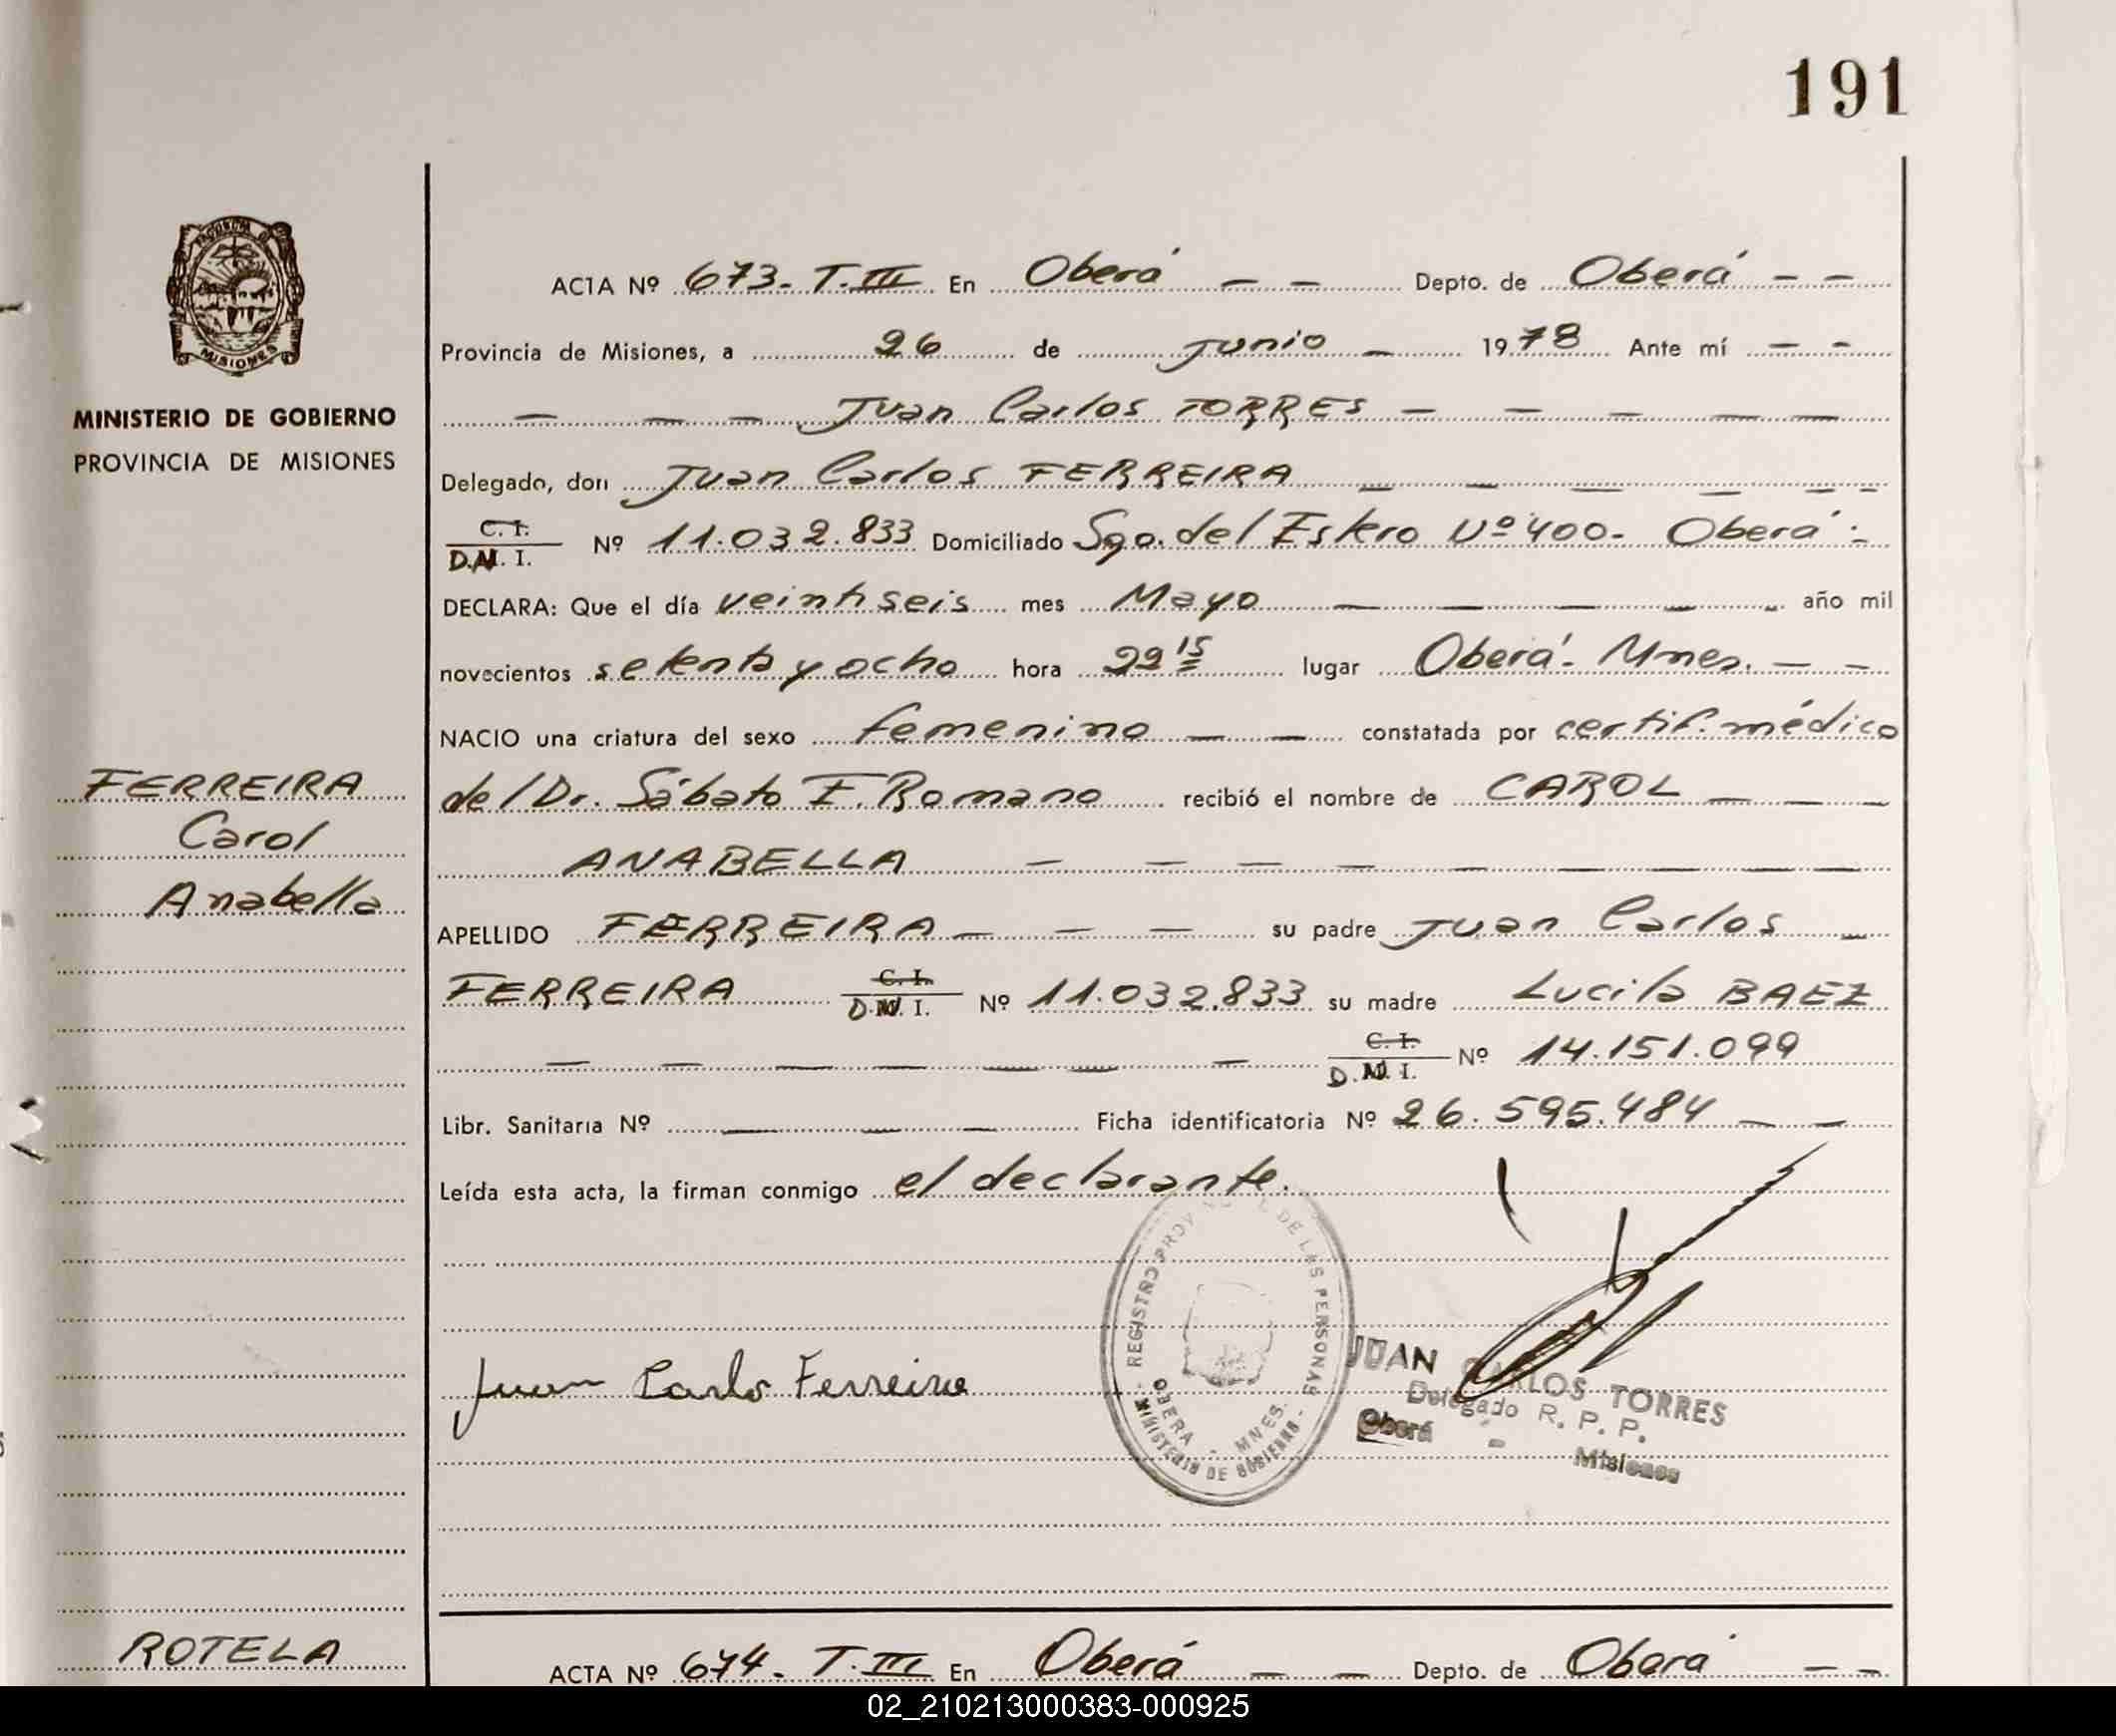 191
PROVINCIA DE
MISIONES
MINISTERIO DE GOBIERNO
PROVINCIA DE MISIONES
FERREIRA
Carol
Anabella
ACTA Nº 673- T.III En Oberá — — Depto. de Oberá — —
Provincia de Misiones, a 26 de Junio — 1978 Ante mí — —
— — — Juan Carlos TORRES — — — — —
Delegado, don Juan Carlos FERREIRA — — — — — —
C. I.
D.N. I. Nº 11.032.833 Domiciliado Sgo. del Estero Nº 400- Oberá-
DECLARA: Que el día veintiseis mes Mayo — — — — — año mil
novecientos setenta y ocho hora 22 15 lugar Oberá- Mnes. — —
NACIO una criatura del sexo femenino — — constatada por certif. médico
del Dr. Sábato F. Romano recibió el nombre de CAROL — — —
ANABELLA — — — — — — — —
APELLIDO FERREIRA — — — su padre Juan Carlos —
FERREIRA C. I.
D.N. I. Nº 11.032.833 su madre Lucila BAEZ
— — — — — — — C. I.
D.N. I. Nº 14.151.099
Libr. Sanitaria Nº — — — Ficha identificatoria Nº 26.595.484 — —
Leída esta acta, la firman conmigo el declarante.
REGISTRO PROVINCIAL DE LAS PERSONAS
OBERA - MNES.
MINISTERIO DE GOBIERNO
Juan Carlo Ferreira
JUAN CARLOS TORRES
Delegado R. P. P.
Oberá - Misiones
ROTELA
ACTA Nº 674- T.III En Oberá — — Depto. de Oberá — —
02_210213000383-000925